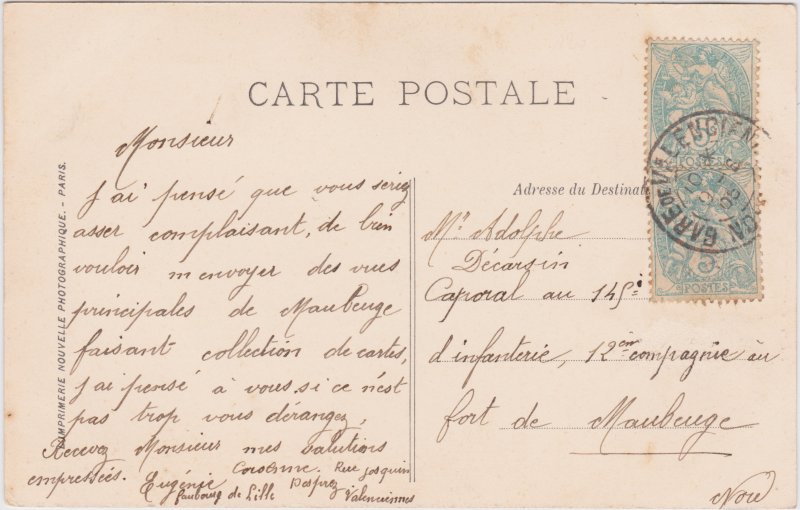 CARTE POSTALE
IMPRIMERIE NOUVELLE PHOTOGRAPHIQUE. - PARIS.
Monsieur
J'ai pensé que vous seriez
asser complaisant, de bien
vouloir m envoyer des vues
principales de Maubeuge
faisant collection de cartes,
j'ai pensé à vous, si ce n'est
pas trop vous dérangez,
Recevez Monsieur mes salutions
empressées. Eugénie
Rue Josquin
faubourg de Lille Desprez Valenciennes
Adresse du Destinat
Mr Adolphe
Décarsin
Caporal au 145i
d'infanterie, 12em compagnie au
fort de Maubeuge
Nord
GARE DE VALENCIEN
5
POSTES
5
POSTES